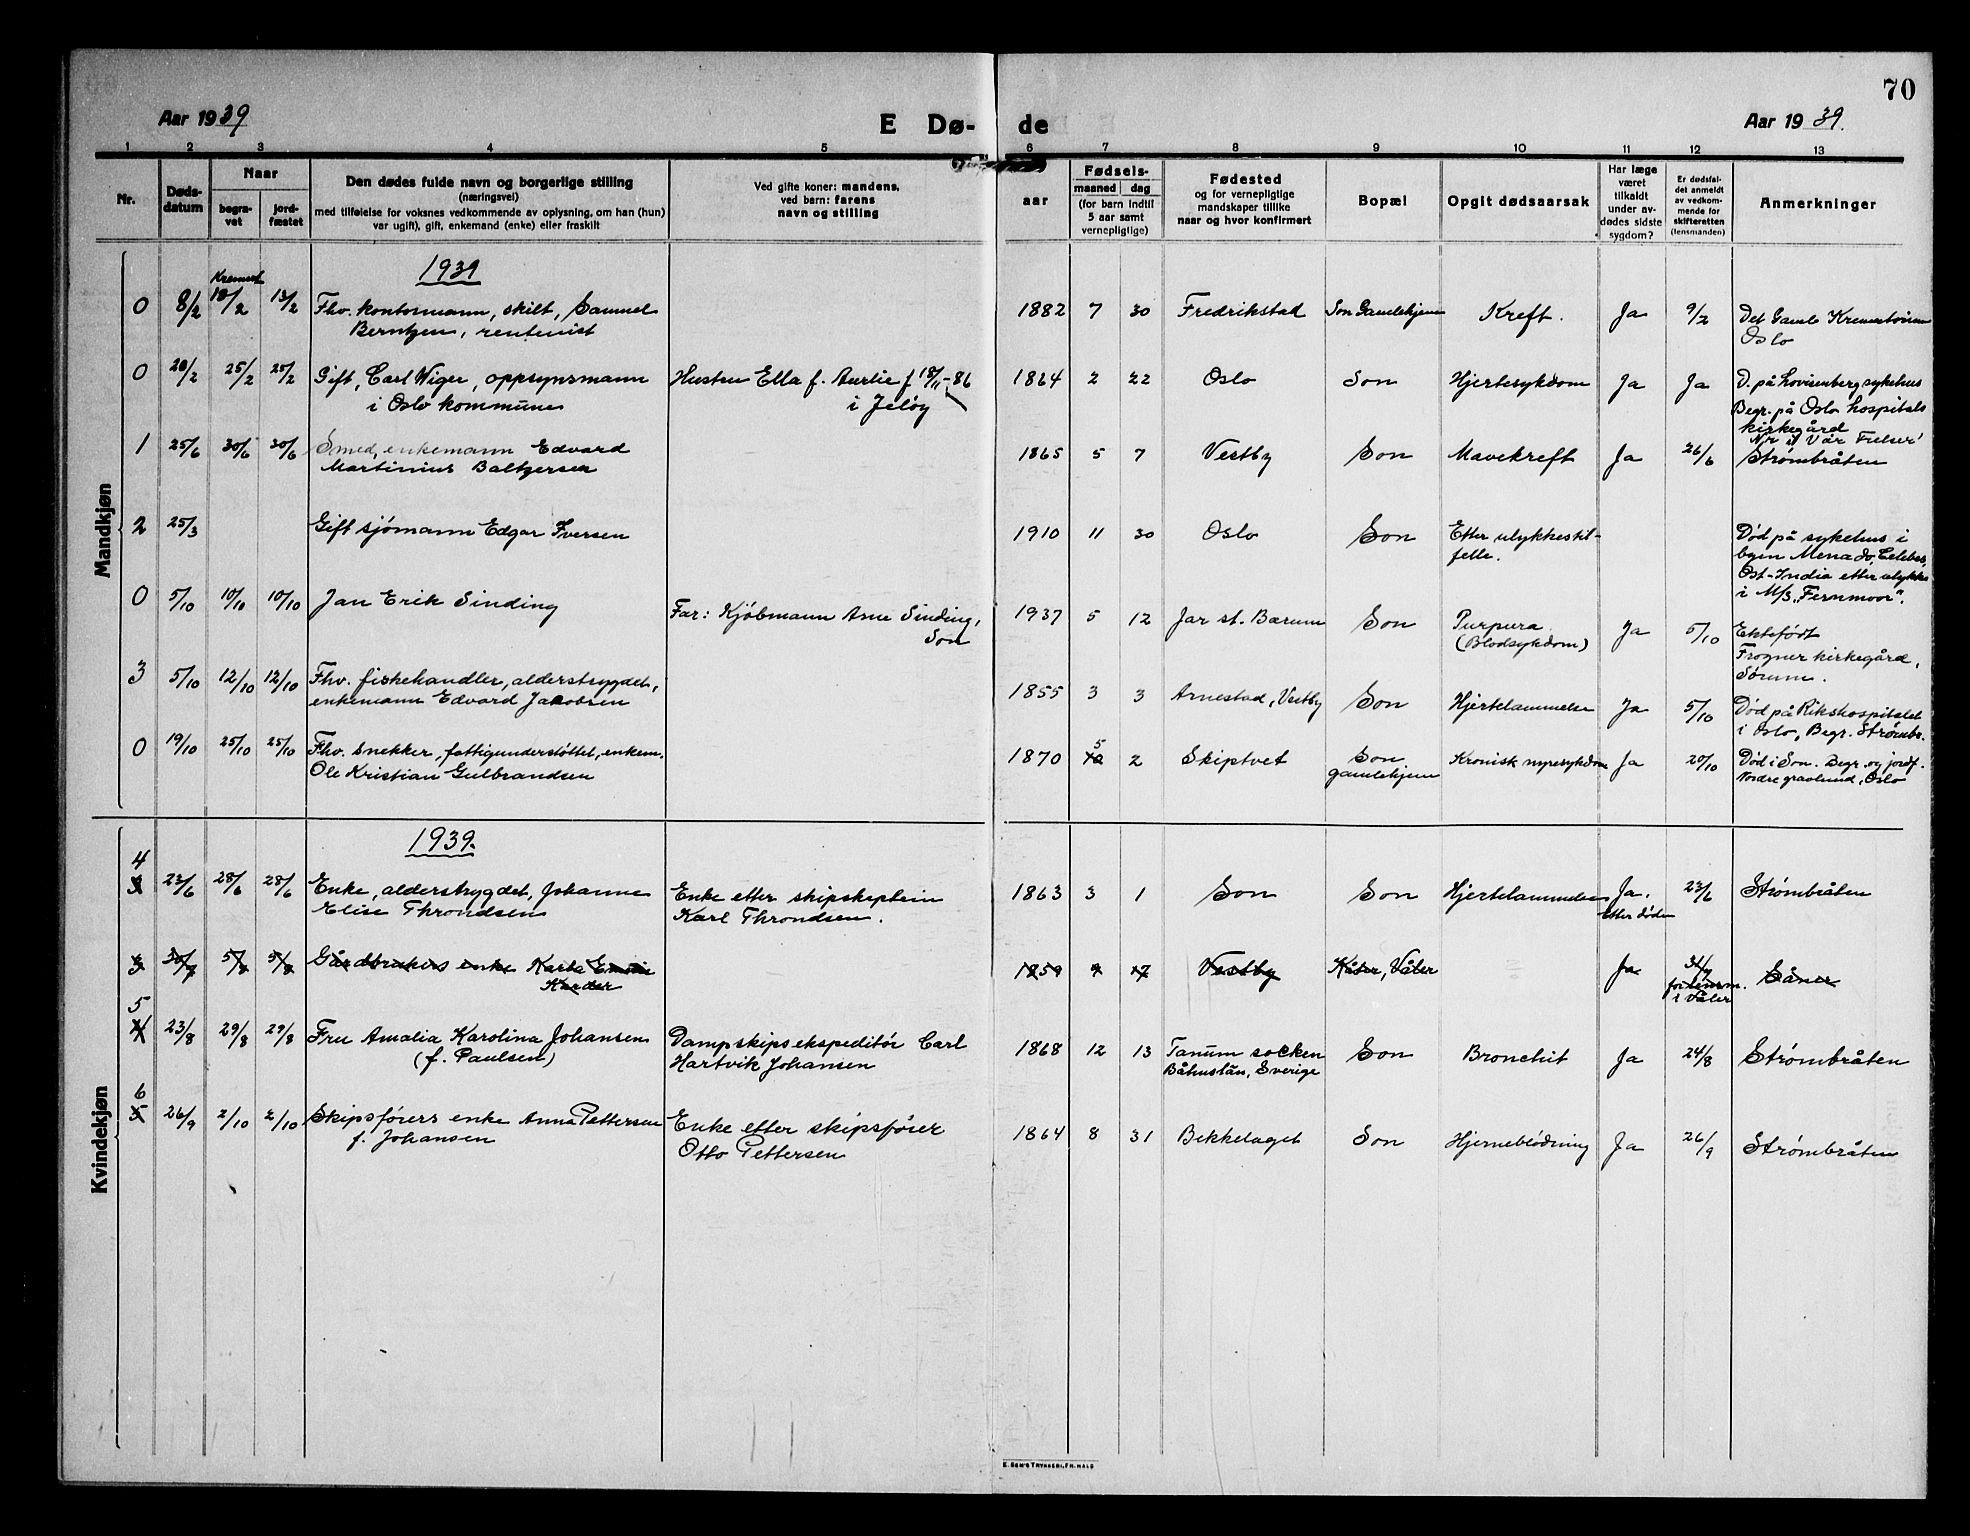 70
Aar 1939
E Dø-
de
Aar 1939.
1 2 3 4 5 6 7 8 9 10 11 12 13
Nr.
Døds-
datum
Naar
begra-
vet
jord-
fæstet
Den dødes fulde navn og borgerlige stilling
(næringsvei)
med tilføielse for voksnes vedkommende av oplysning, om han (hun)
var ugift), gift, enkemand (enke) eller fraskilt
Ved gifte koner: mandens,
ved barn: farens
navn og stilling
aar
Fødsels-
maaned dag
(for barn indtil
5 aar samt
vernepligtige)
Fødested
og for vernepligtige
mandskaper tillike
naar og hvor konfirmert
Bopæl
Opgit dødsaarsak
Har læge
været
tilkaldt
under av-
dødes sidste
sygdom?
Er dødsfal-
det anmeldt
av vedkom-
mende for
skifteretten
(lensmanden)
Anmerkninger
Mandkjøn
1939
Kremert
0 8/2 18/2 13/2 Fhv. kontormann, skilt, Samuel
Berntzen, rentenist
1882 7 30 Fredrikstad Son Gamlehjem Kreft. Ja 9/2 Det Gamle Krematorium
Oslo
0 20/2 25/2 25/2 Gift, Carl Wiger, oppsynsmann
i Oslo kommune
Hustru Ella f. Aurlie f 18/11-86
i Jeløy
1864 2 22 Oslo Son Hjertesykdom Ja Ja D. på Lovisenberg sykehus
Begr. på Oslo hospitals
kirkegård
N/r i Vår Frelser'
1 25/6 30/6 30/6 Smed, enkemann Edvard
Martinius Baltzersen
1865 5 7 Vestby Son Mavekreft Ja 26/6 Strømbråten
2 25/3 Gift sjømann Edgar Iversen
1910 11 30 Oslo Son Etter ulykkestil-
felle.
Død på sykehus i
byen Menado, Celebes,
Ost-India etter ulykke
i M/S. "Fernmoor".
0 5/10 10/10 10/10 Jan Erik Sinding
Far: Kjøbmann Arne Sinding,
Son
1937 5 12 Jar st. Bærum Son Purpura
(Blodsykdom)
Ja 5/10 Ektefødt
Frogner kirkegård,
Sørum.
3 5/10 12/10 12/10 Fhv. fiskehandler, alderstrygdet,
enkemann Edvard Jakobsen
1855 3 3 Arnestad, Vestby Son Hjertelammelse Ja 5/10 Død på Rikshospitalet
i Oslo, Begr. Strømbr.
0 19/10 25/10 25/10 Fhv. snekker, fattigunderstøttet, enkem.
Ole Kristian Gulbrandsen
1870 5 2 Skiptvet Son
gamlehjem
Kronisk nyresykdom Ja 20/10 Død i Son. Begr. og jordf.
Nordre gravlund, Oslo
Kvindekjøn
1939.
4 23/6 28/6 28/6 Enke, alderstrygdet, Johanne
Elise Throndsen
Enke etter skipskaptein
Karl Throndsen.
1863 3 1 Son Son Hjertelammelse Ja.
Etter døden
23/6 Strømbråten
3 30/7 5/8 5/8 Gårdbrukers enke Karta Emilie
Karder
1859 9 17 Vestby Kåter, Våler Ja 31/7
for lensm.
i Våler
Såner
5
4 23/8 29/8 29/8 Fru Amalia Karolina Johansen
(f. Paulsen)
Dampskipsekspeditør Carl
Hartvik Johansen
1868 12 13 Tanum socken
Båhuslän, Sverige
Son Bronchit Ja 24/8 Strømbråten
6
5 26/9 2/10 2/10 Skipsførers enke Anna Pettersen
f. Johansen
Enke etter skipsfører
Otto Pettersen
1864 8 31 Bekkelaget Son Hjerneblødning Ja 26/9 Strømbråten
E. SEM'S TRYKKERI, FR.HALD